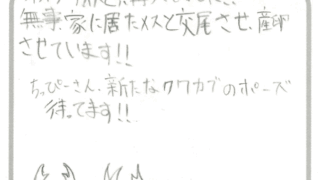 無事、家に居たメスと交尾させ、産卵
させています!!
ちっぴーさん、新たなクワカブのポーズ
待ってます!!